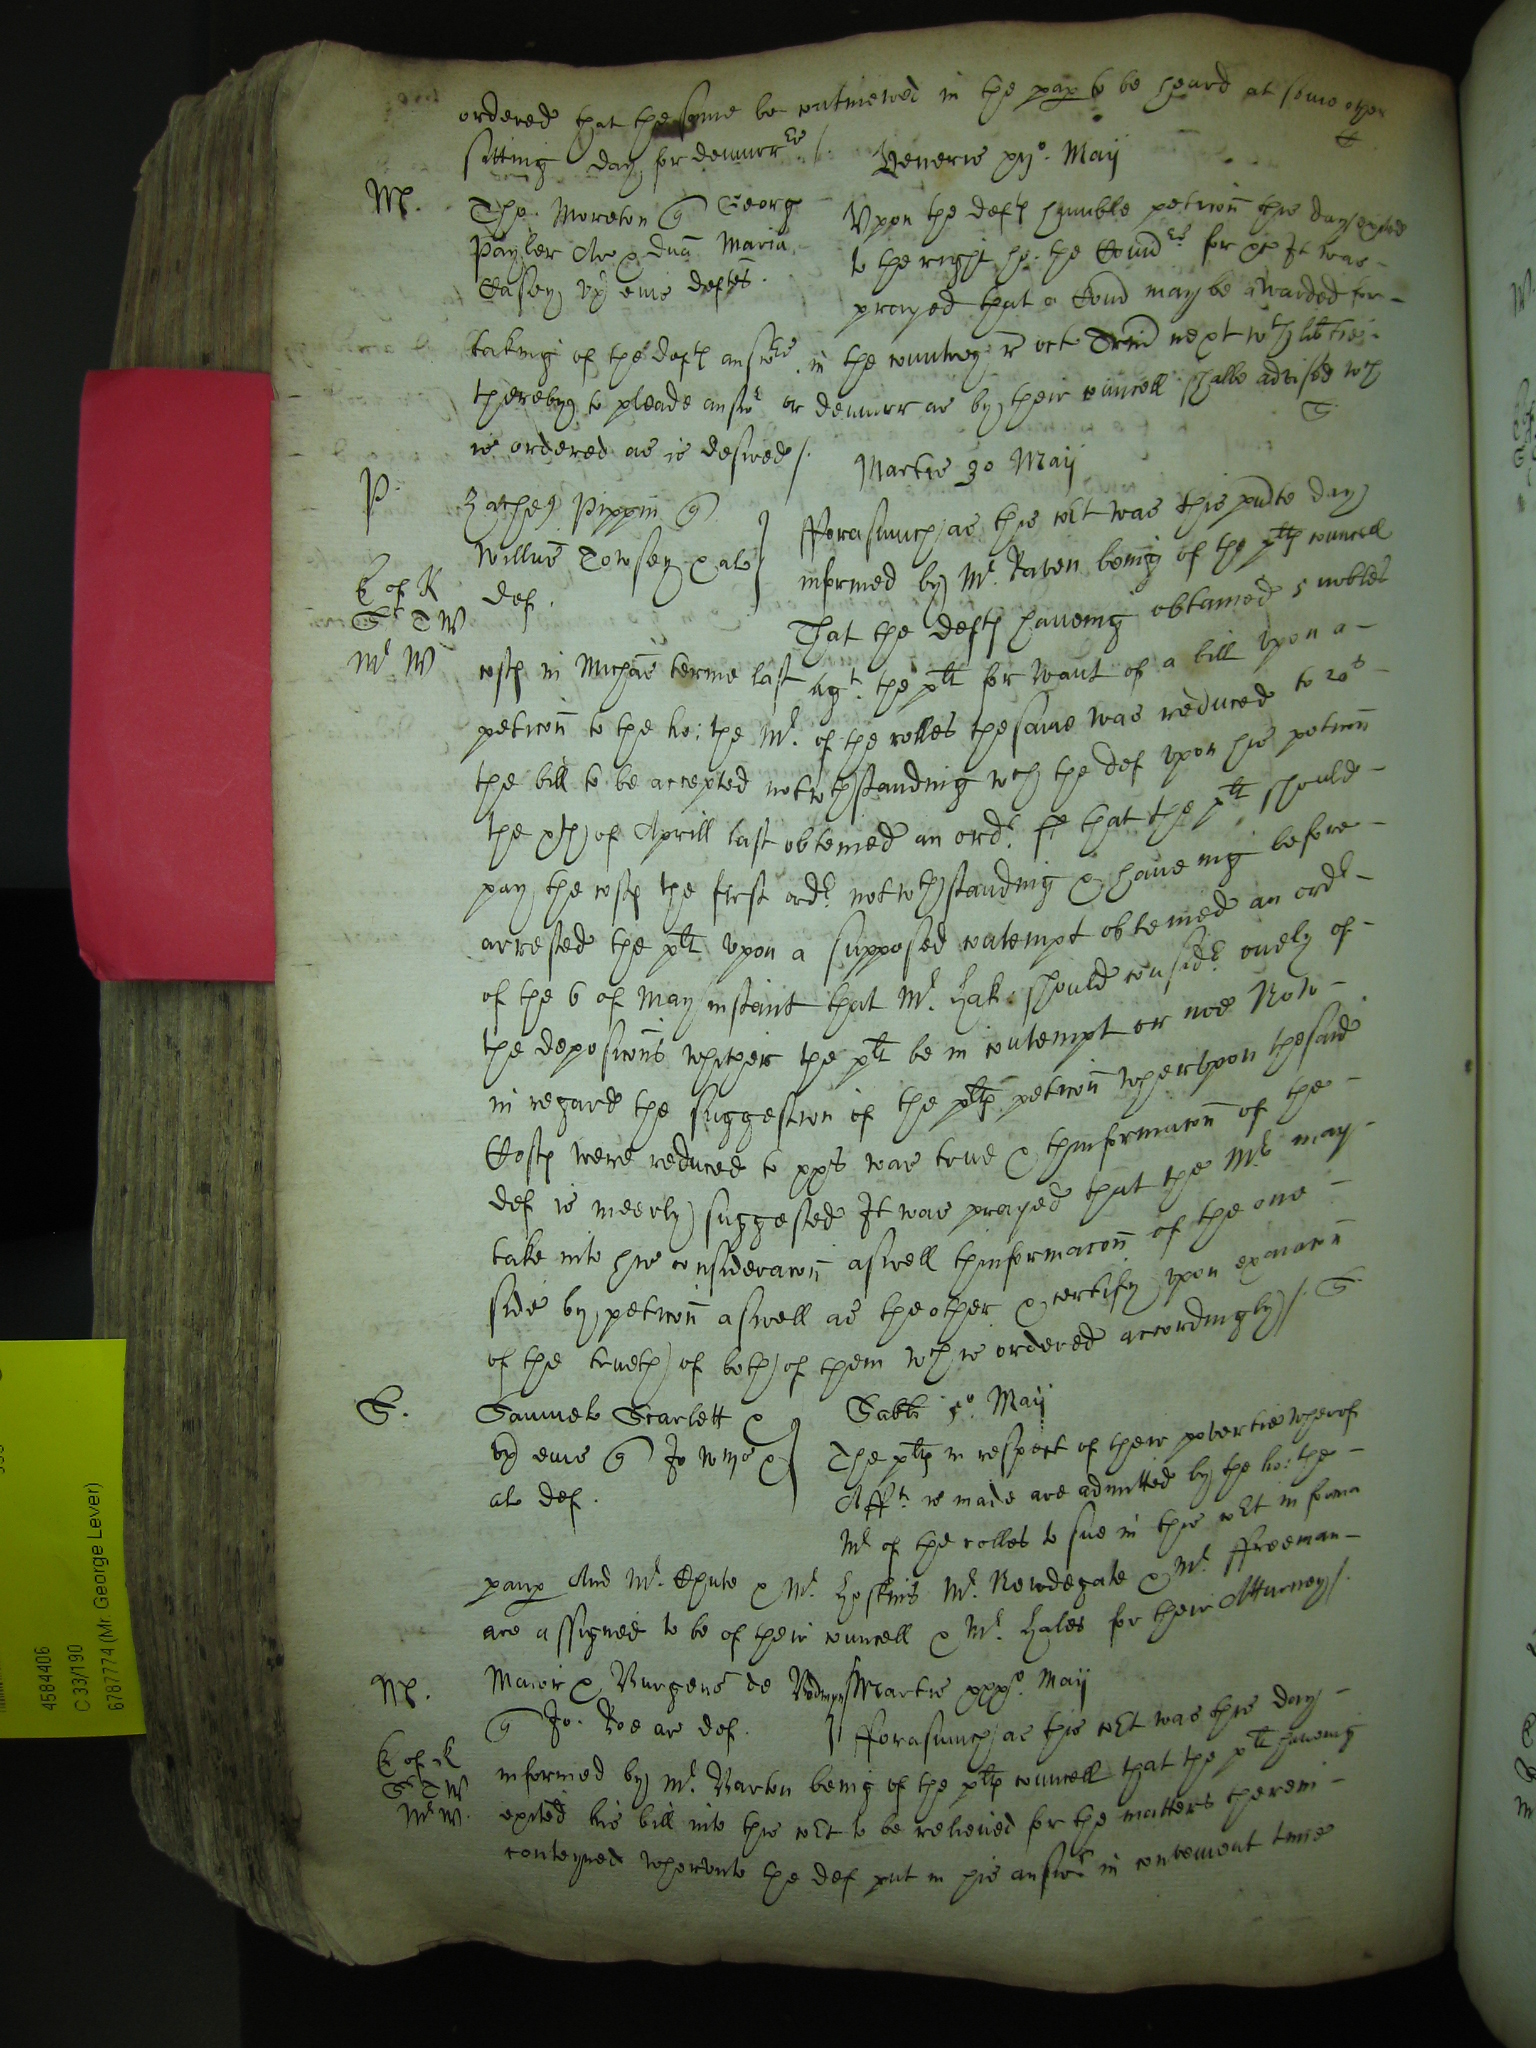 ordered that the same be continewed in the pap to be heard at some other
sitting day for demurrrs /.
Veneris xijo. Maij
M.
Tho. Moreton q Georg
Payler Ar & Dna Maria
Casey ux eius deftes.
Upon the deftes humble peticon this day exhited
to the right ho. the Comrs for &c It was
prayed that a Com may be awarded for
taking of the deftes answrs in the countrey r oct Trin next with libties
thereby to pleade answr or demurr as by their councell shalbe advised wch
is ordered as is desired /.
P.
Martis 30 Maij
Zacheq Pippin q
Willus Towsey & als
def.
fforasmuch as this cort was this pnte day
informed by Mr. Raven being of the pltes councell
E of K
Sr T W
Mr W
That the deftes haveing obtained 5 nobles
costes in Michas terme last agt. the plt for want of a bill upon a
peticon to the ho: the Mr. of the rolles the same was reduced to 20s
the bill to be accepted notwthstanding wch the def upon his peticon
the xth of Aprill last obteined an ordr. that the plt should
pay the costes the first ordr. notwthstanding & haveing before
arrested the plt upon a supposed contempt obteined an ordr
of the 6 of May instant that Mr. Hak. should considr. onely of
the deposicons whither the plt be in contempt or noe Now
in regard the suggestion of the pltes peticon wherupon the said
Costes were reduced to xxs was true & thinformacon of the
def is meerly suggested It was prayed that the Mr may
take into his consideracon aswell thinformacon of the one
side by peticon aswell as the other & certify upon exaiacon
of the trueth of both of them wch is ordered accordingly /. S
S.
Samuel Scarlett &
ux eius q Jo &
als def.
Sabti 5o. Maij
The pltes in respect of their povertie wherof
Afft. is made are admitted by the ho: the
Mr of the rolles to sue in this cort in forma
paup And Mr. Chute & Mr. Hoskins Mr. Newdegate & Mr. ffreeman
are assigned to be of their councell & Mr. Hales for their Atturney /.
M.
Maior & Burgens de Bodmyn
q Jo. Roe ar def.
Martis xxxo. Maij
fforasmuch as this cort was this day
E of K
Sr T W
Mr W.
informed by Mr. Barton being of the pltes councell that the plt haveing
exited his bill into this cort to be relieved for the matters therein
conteyned wherunto the def put in his answr in convenient time
4584406
C 33/190
6787774 (Mr. George Lever)